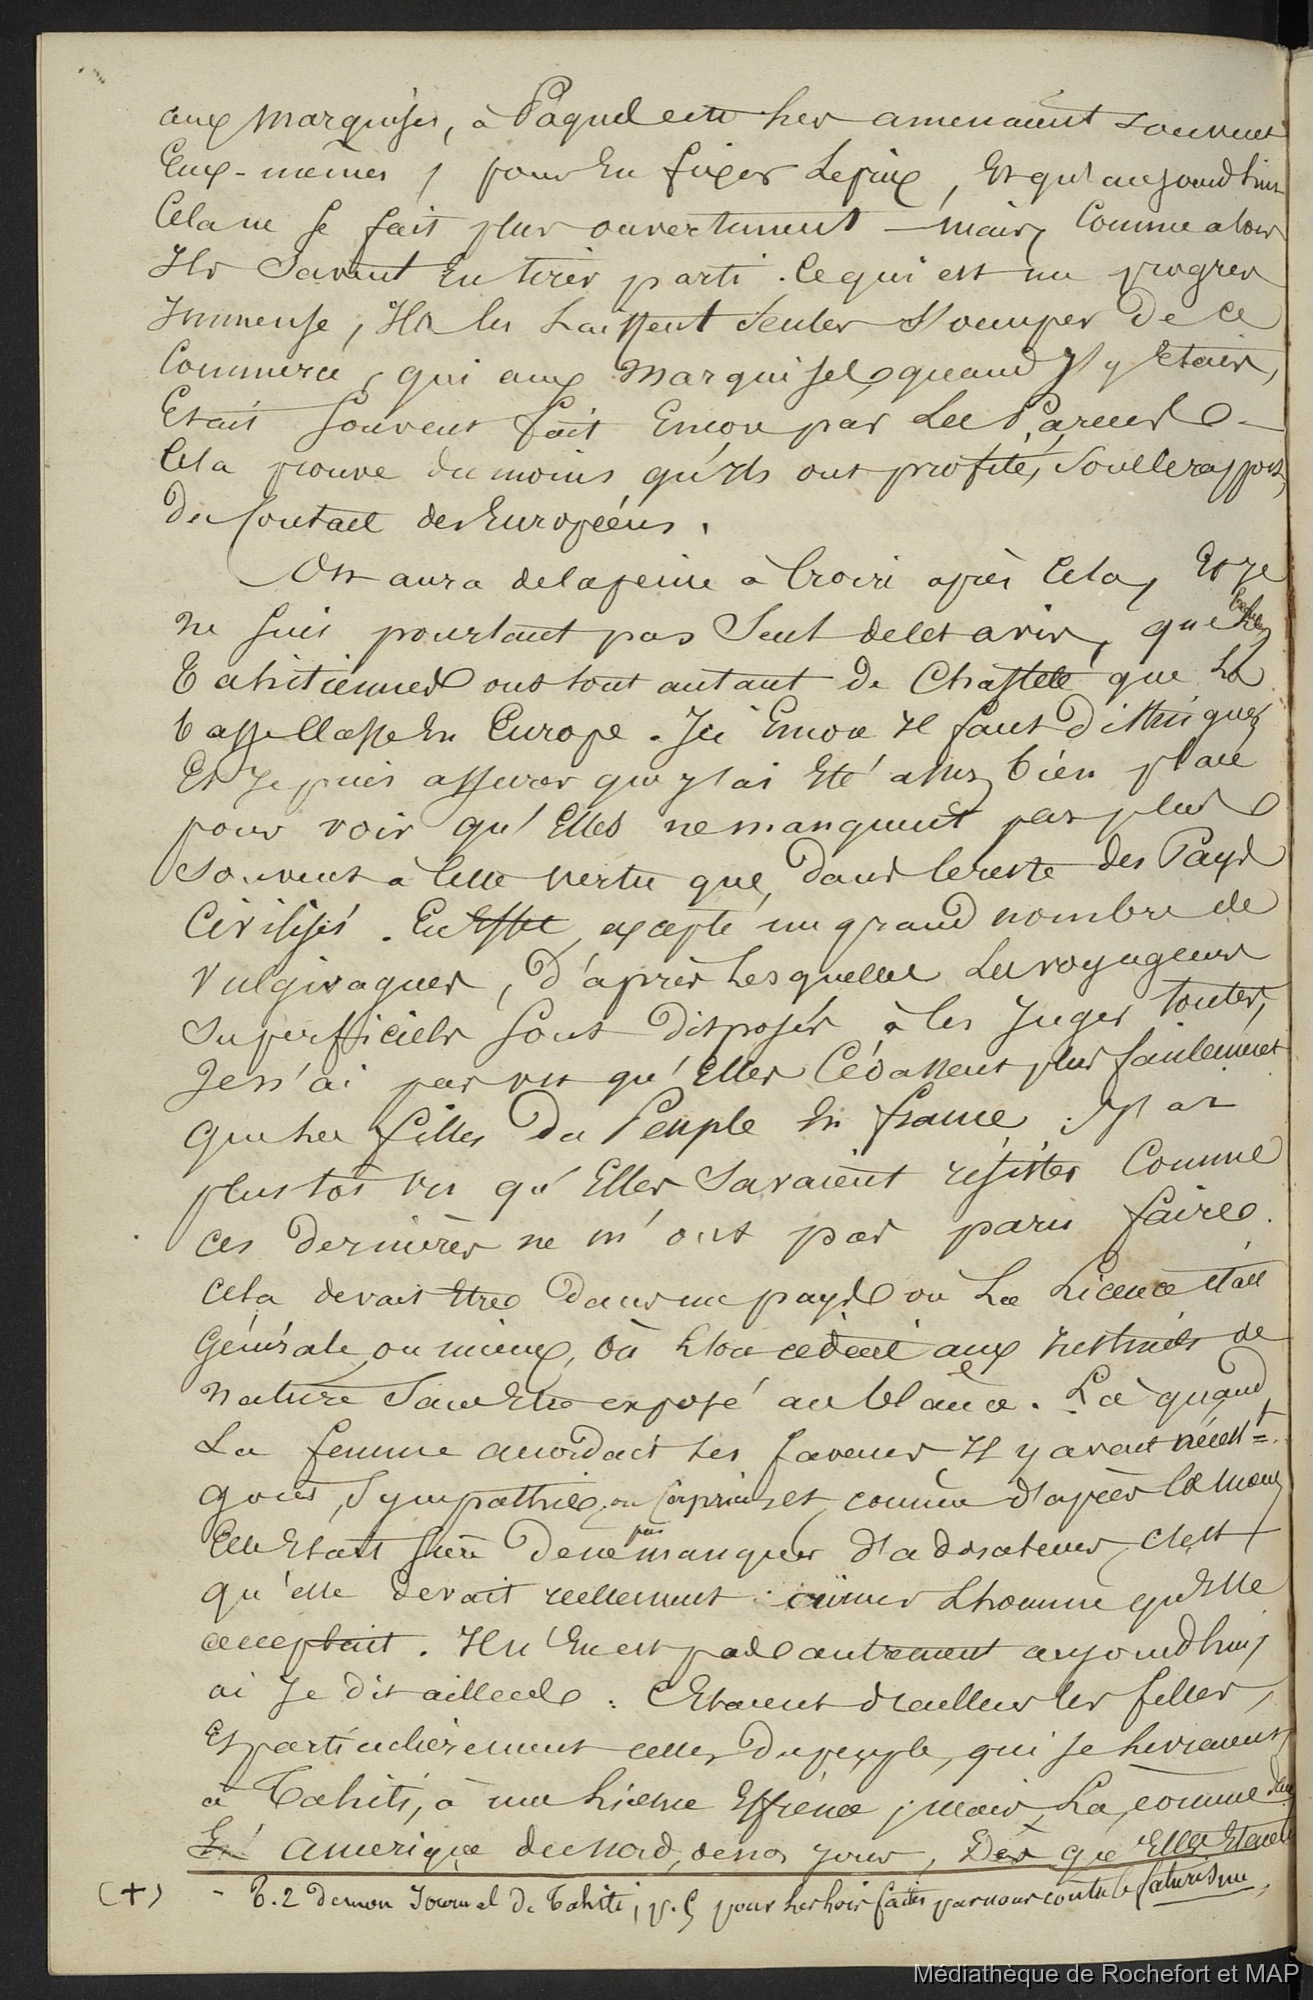 aux marquises, à Paquel etc les amenaient souvent
Eux-mêmes, pour En fixer Le prix, Et qu'aujourd'hui
Cela ne se fait plus ouvertement – mais, Comme alors
Ils Savent En tirer parti. Ce qui est un progrès
Immense, Ils les Laissent Seules S'occuper De ce
Commerce, qui aux Marquises, quand J'y Etais,
Etait Souvent fait Encore par Les Parents –
Cela prouve du moins qu'ils ont profité, Sous le rapport,
Du Contact des Européens.
On aura de la peine à Croire après Cela, Et je
ne suis pourtant pas Seul de cet avis, que les
Tahitiennes ont tout autant de Chasteté que La
basse Classe En Europe. Ici Encore Il faut Distinguer
Et Je puis assurer que j'ai Eté assez bien placé
pour voir qu'Elles ne manquent pas plus
Souvent à Cette vertu que, dans le reste des Pays
Civilisés. En Effet excepté un grand nombre de
Vulgivagues, D'après Lesquelles Les voyageurs
Superficiels Sont Disposés à les Juger toutes,
Je n'ai pas vu qu'Elles Cédassent plus facilement
Que les filles Du Peuple En france. J'ai
plustôt vu qu'Elles Savaient résister Comme
ces Dernières ne m'ont pas paru faire.
Cela devait Etre Dans un pays où La Licence était
Générale, ou mieux, où L'on cédait aux instincts de
Nature Sans Etre exposé au blâme. Là quand
La femme accordait ses faveurs Il y avait nécess<sup>t</sup>=
goût, Sympathie, ou Caprice et, comme d'après les mœurs
Elle Etait Sûre De ne pas manquer d'adorateurs, c'est
qu'elle devait réellement aimer L'homme qu'Elle
acceptait. Il n'En est pas autrement aujourd'hui,
ai Je dit ailleurs. C'Etaient d'ailleurs Les filles,
Et particulièrement celles Du peuple, qui se livraient
à Tahiti, à une Licence Effrénée; mais, Là, comme dans
L'Amérique du nord, de nos jours, Dès que Elles Etaient
(+) - T.2 De mon Journal De Tahiti, p. pour les lois faites par nous contre le faturisme,
Médiathèque de Rochefort et MAP